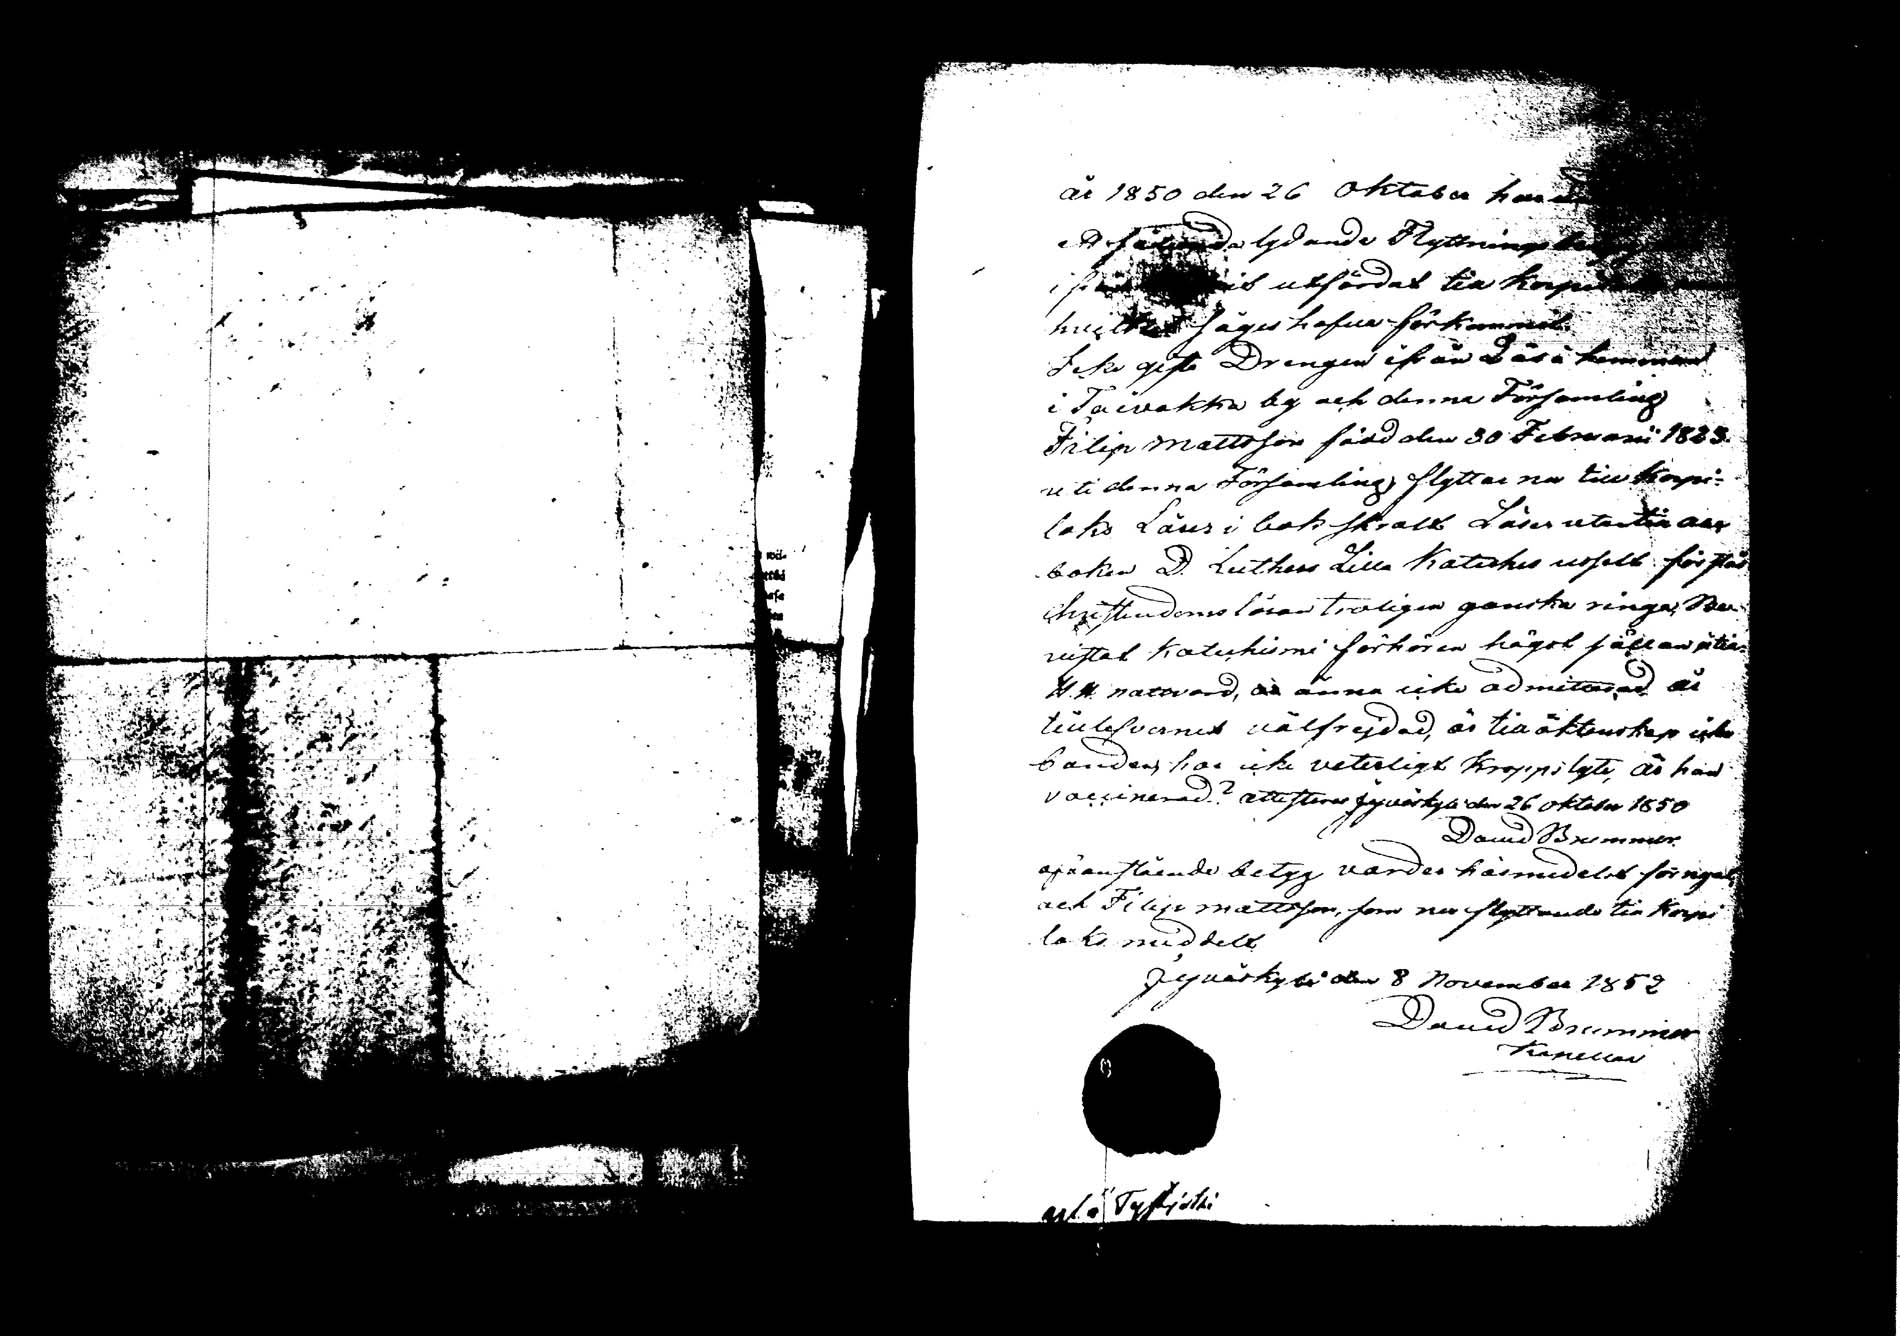 år 1850 den 26 Oktober har
ett lydande Flyttningsbetyg
utfärdat till Korpilaks
hvilket säges hafva förkommit.
Icke gifte Drengen ifrån hemman
i Taivakka by och denna Församling
Filip Mattsson född den 30 Februari 1823.
uti denna Församling, flyttar nu till Korpi-
laks Läser i bok svalt Läser utantill abc
boken D. Luthers Lilla Kateches usselt förstår
christendoms läran troligen ganska ringa, Be-
vistat Katechismi förhören högst sällan är till
H H nattvard, ännu icke admitterad är
till lefvernet välfrejdad, är till äktenskap icke
bunden, har icke veterligt kroppslyte, är han
vaccinerad? attesteras Jyväskylä den 26 oktober 1850
David Brummer.
ofvanstående betyg varder härmedelst förnyat
och Filip Mattsson, som nu flyttande till Korpi
laks meddelt
Jyväskylä den 8 November 1852
David Brummer